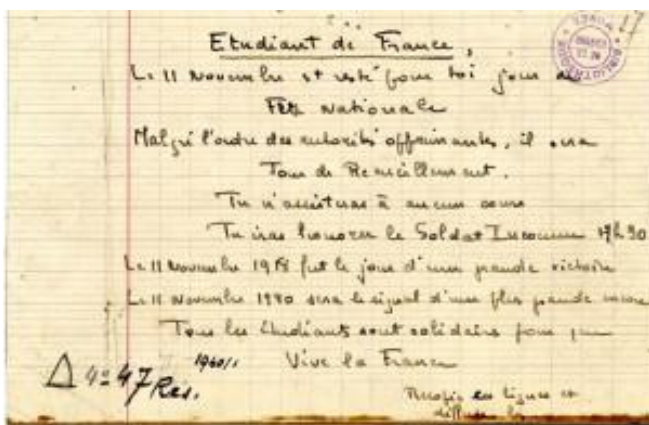 Etudiant de France,
Le 11 Novembre est resté pour toi jour de
Fête Nationale
Malgré l'ordre des autorités opprimantes, il sera
Jour de Recueillement.
Tu n'assisteras à aucun cours
Tu iras honorer le Soldat Inconnu 17h30
Le 11 Novembre 1918 fut le jour d'une grande victoire
Le 11 Novembre 1940 sera le signal d'une plus grande encore
Tous les étudiants sont solidaires pour que
Vive la France
1940/1
4° 47 Rés.
Recopie ces lignes et
diffuse les
BIBLIOTHEQUE